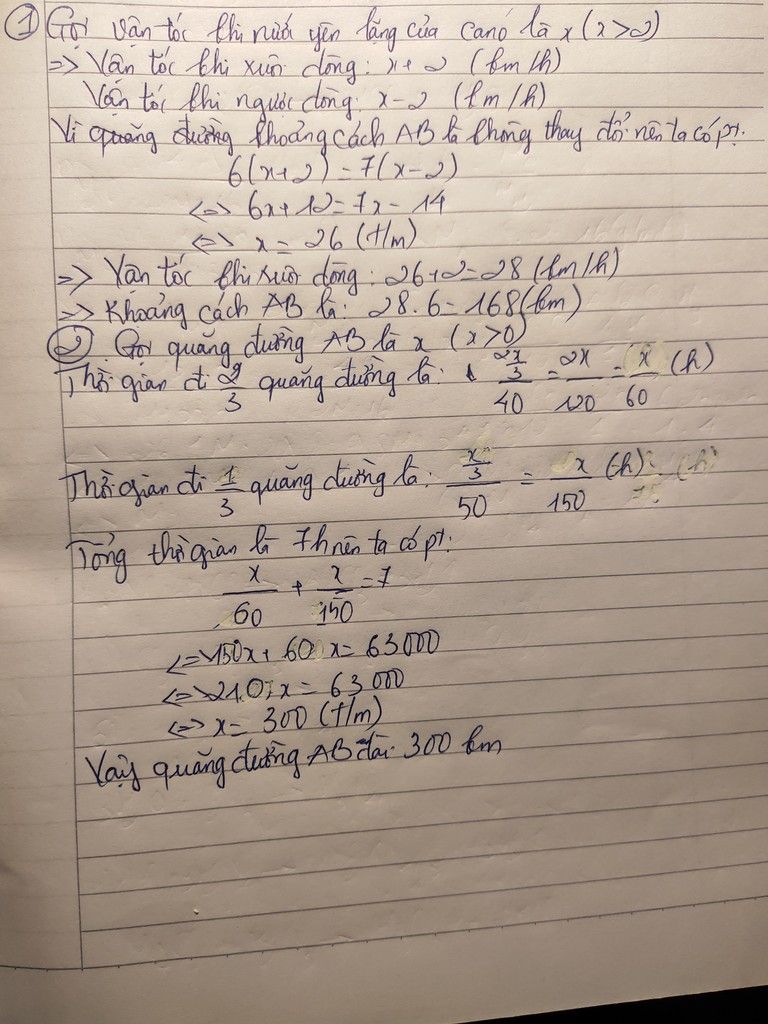 ① Gọi vận tốc khi nước yên lặng của canô là x (x>2)
=> Vận tốc khi xuôi dòng: x+2 (km/h)
Vận tốc khi ngược dòng: x-2 (km/h)
Vì quãng đường khoảng cách AB là không thay đổi nên ta có pt:
6(x+2) = 7(x-2)
<=> 6x+12=7x-14
<=> x = 26 (t/m)
=> Vận tốc khi xuôi dòng: 26+2=28 (km/h)
=> Khoảng cách AB là: 28.6=168(km)
② Gọi quãng đường AB là x (x>0)
Thời gian đi 2/3 quãng đường là: (2x/3)/40 = 2x/120 = x/60 (h)
Thời gian đi 1/3 quãng đường là: (x/3)/50 = x/150 (h)
Tổng thời gian là 7h nên ta có pt:
x/60 + x/150 = 7
<=> 150x+ 60 x= 63000
<=> 210x = 63 000
<=> x= 300 (t/m)
Vậy quãng đường AB dài 300 km